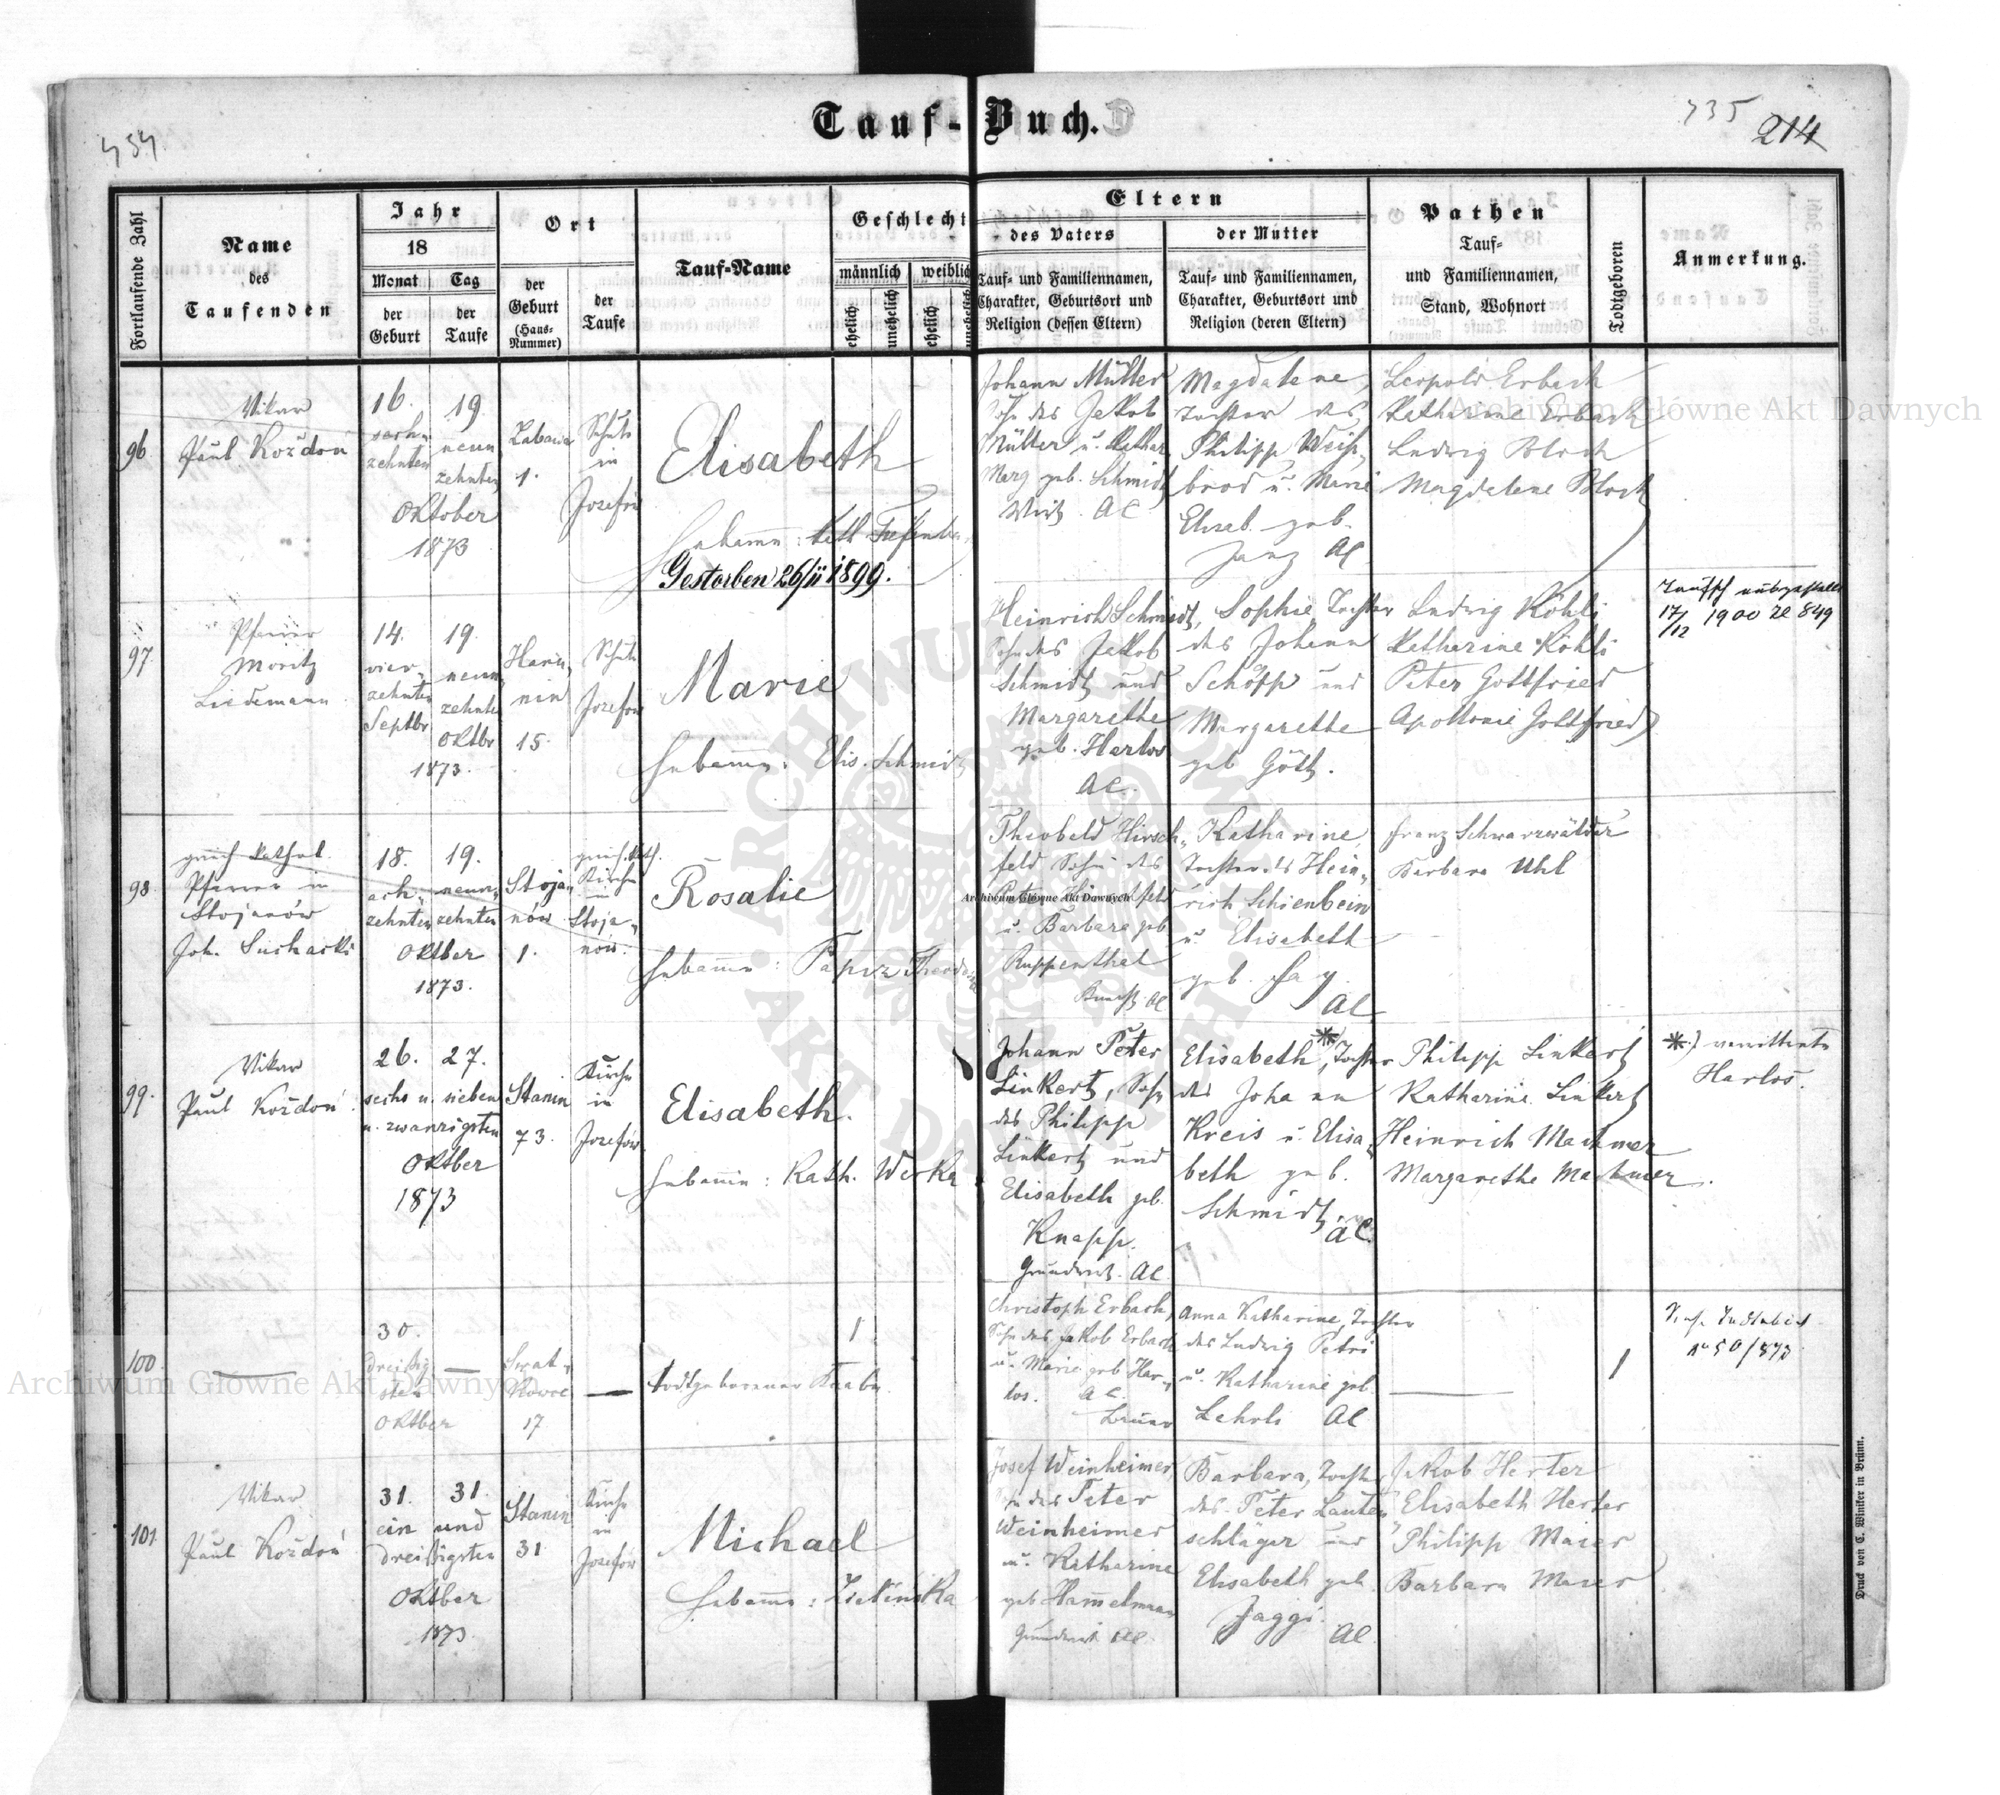 Tauf-Buch.
454
435
214
Fortlaufende Zahl
Name
des
Taufenden
Jahr
18
Monat
der
Geburt
Tag
der
Taufe
Ort
der
Geburt
(Haus-
Nummer)
der
Taufe
Tauf-Name
Geschlecht
männlich
weiblich
ehelich
unehelich
ehelich
unehelich
Eltern
des Vaters
Tauf- und Familiennamen,
Charakter, Geburtsort und
Religion (dessen Eltern)
der Mutter
Tauf- und Familiennamen,
Charakter, Geburtsort und
Religion (deren Eltern)
Pathen
Tauf-
und Familiennamen,
Stand, Wohnort
Todtgeboren
Anmerkung.
96
Vikar
Paul Koždoń
16.
sechs
zehnten
19.
neun
zehnten
Oktober
1873
1.
Schule
in
Josefów
Elisabeth
Hebamme: Kath.
Gestorben 26/II 1899.
Johann Müller
Sohn des Jakob
Müller u. Kathar
Marg geb. Schmidt
Wirt. AC
Magdalene,
Tochter des
Philipp Weiß-
brod u. Marie
Elisab. geb.
Janz AC
Leopold Erbach
Katharine Erbach
Ludwig Bloch
Magdalene Bloch
97.
Pfarrer
Moritz
Liedemann
14.
vier-
zehnten
Septbr
19.
neun-
zehnten
Oktbr
1873.
Hanu-
nin
15.
Schule
Josefów
Marie
Hebamme: Elis. Schmidt
Heinrich Schmidt,
Sohn des Jakob
Schmidt und
Margarethe
geb. Harlos
AC.
Sophie, Tochter
des Johann
Schöpp und
Margarethe
geb Gött.
Ludwig Köhli
Katharine Köhli
Peter Gottfried
Apollonie Gottfried
17/12 1900 Zl 849
98.
griech kathol.
Pfarrer in
Stojanów
Joh. Suchacki
18.
ach-
zehnten
19.
neun-
zehnten
Oktber
1873.
Stoja-
nów
1.
griech. kath.
Kirche
in
Stoja-
now.
Rosalie
Hebamme:
Theobald Hirsch-
feld Sohn des
u. Barbara geb
Ruppenthal
AC
Katharine,
Tochter d. Hein-
rich Schienbein
u. Elisabeth
geb. Fay
AC
Franz Schwarzwälder
Barbara Uhl
99.
Vikar
Paul Koždoń.
26. 27.
sechs u. sieben
u. zwanzigsten
Oktber
1873
Stanin
73.
Kirche
in
Josefów
Elisabeth.
Hebamme: Kath. Werka
Johann Peter
Linkert, Sohn
des Philipp
Linkert und
Elisabeth geb.
Knapp.
Grundwirt. AC
Elisabeth *, Tochter
des Johann
Kreis u. Elisa-
beth geb.
Schmidt,
AC.
Philipp Linkert
Katharine Linkert
Heinrich Machmer
Margarethe Machmer.
*) verwittwete
Harlos.
100.
30.
dreißig
sten
Oktber
17.
todtgeborener Knabe.
1
Christoph Erbach,
Sohn des Jakob Erbach
u. Marie geb Har-
los. AC.
Anna Katharine, Tochter
des Ludwig Petri
u. Katharine geb.
AC
1
No 50/873
101
Vikar
Paul Koždoń
31. 31.
ein und
dreißigsten
Oktber
1873
Stanin
31
Kirche
in
Josefów
Michael
Hebamme: Zielinska
Josef Weinheimer,
Sohn des Peter
Weinheimer
u. Katharine
geb Hammelmann
Grundwirt AC.
Barbara, Tochter
des Peter Lauten-
schläger und
Elisabeth geb.
Jaggi.
AC.
Jakob Herter
Elisabeth Herter
Philipp Maier
Barbara Maier
Druck von C. Winiker in Brünn.
Archiwum Główne Akt Dawnych
Archiwum Główne Akt Dawnych
Archiwum Główne Akt Dawnych
ARCHIWUM GŁÓWNE AKT DAWNYCH